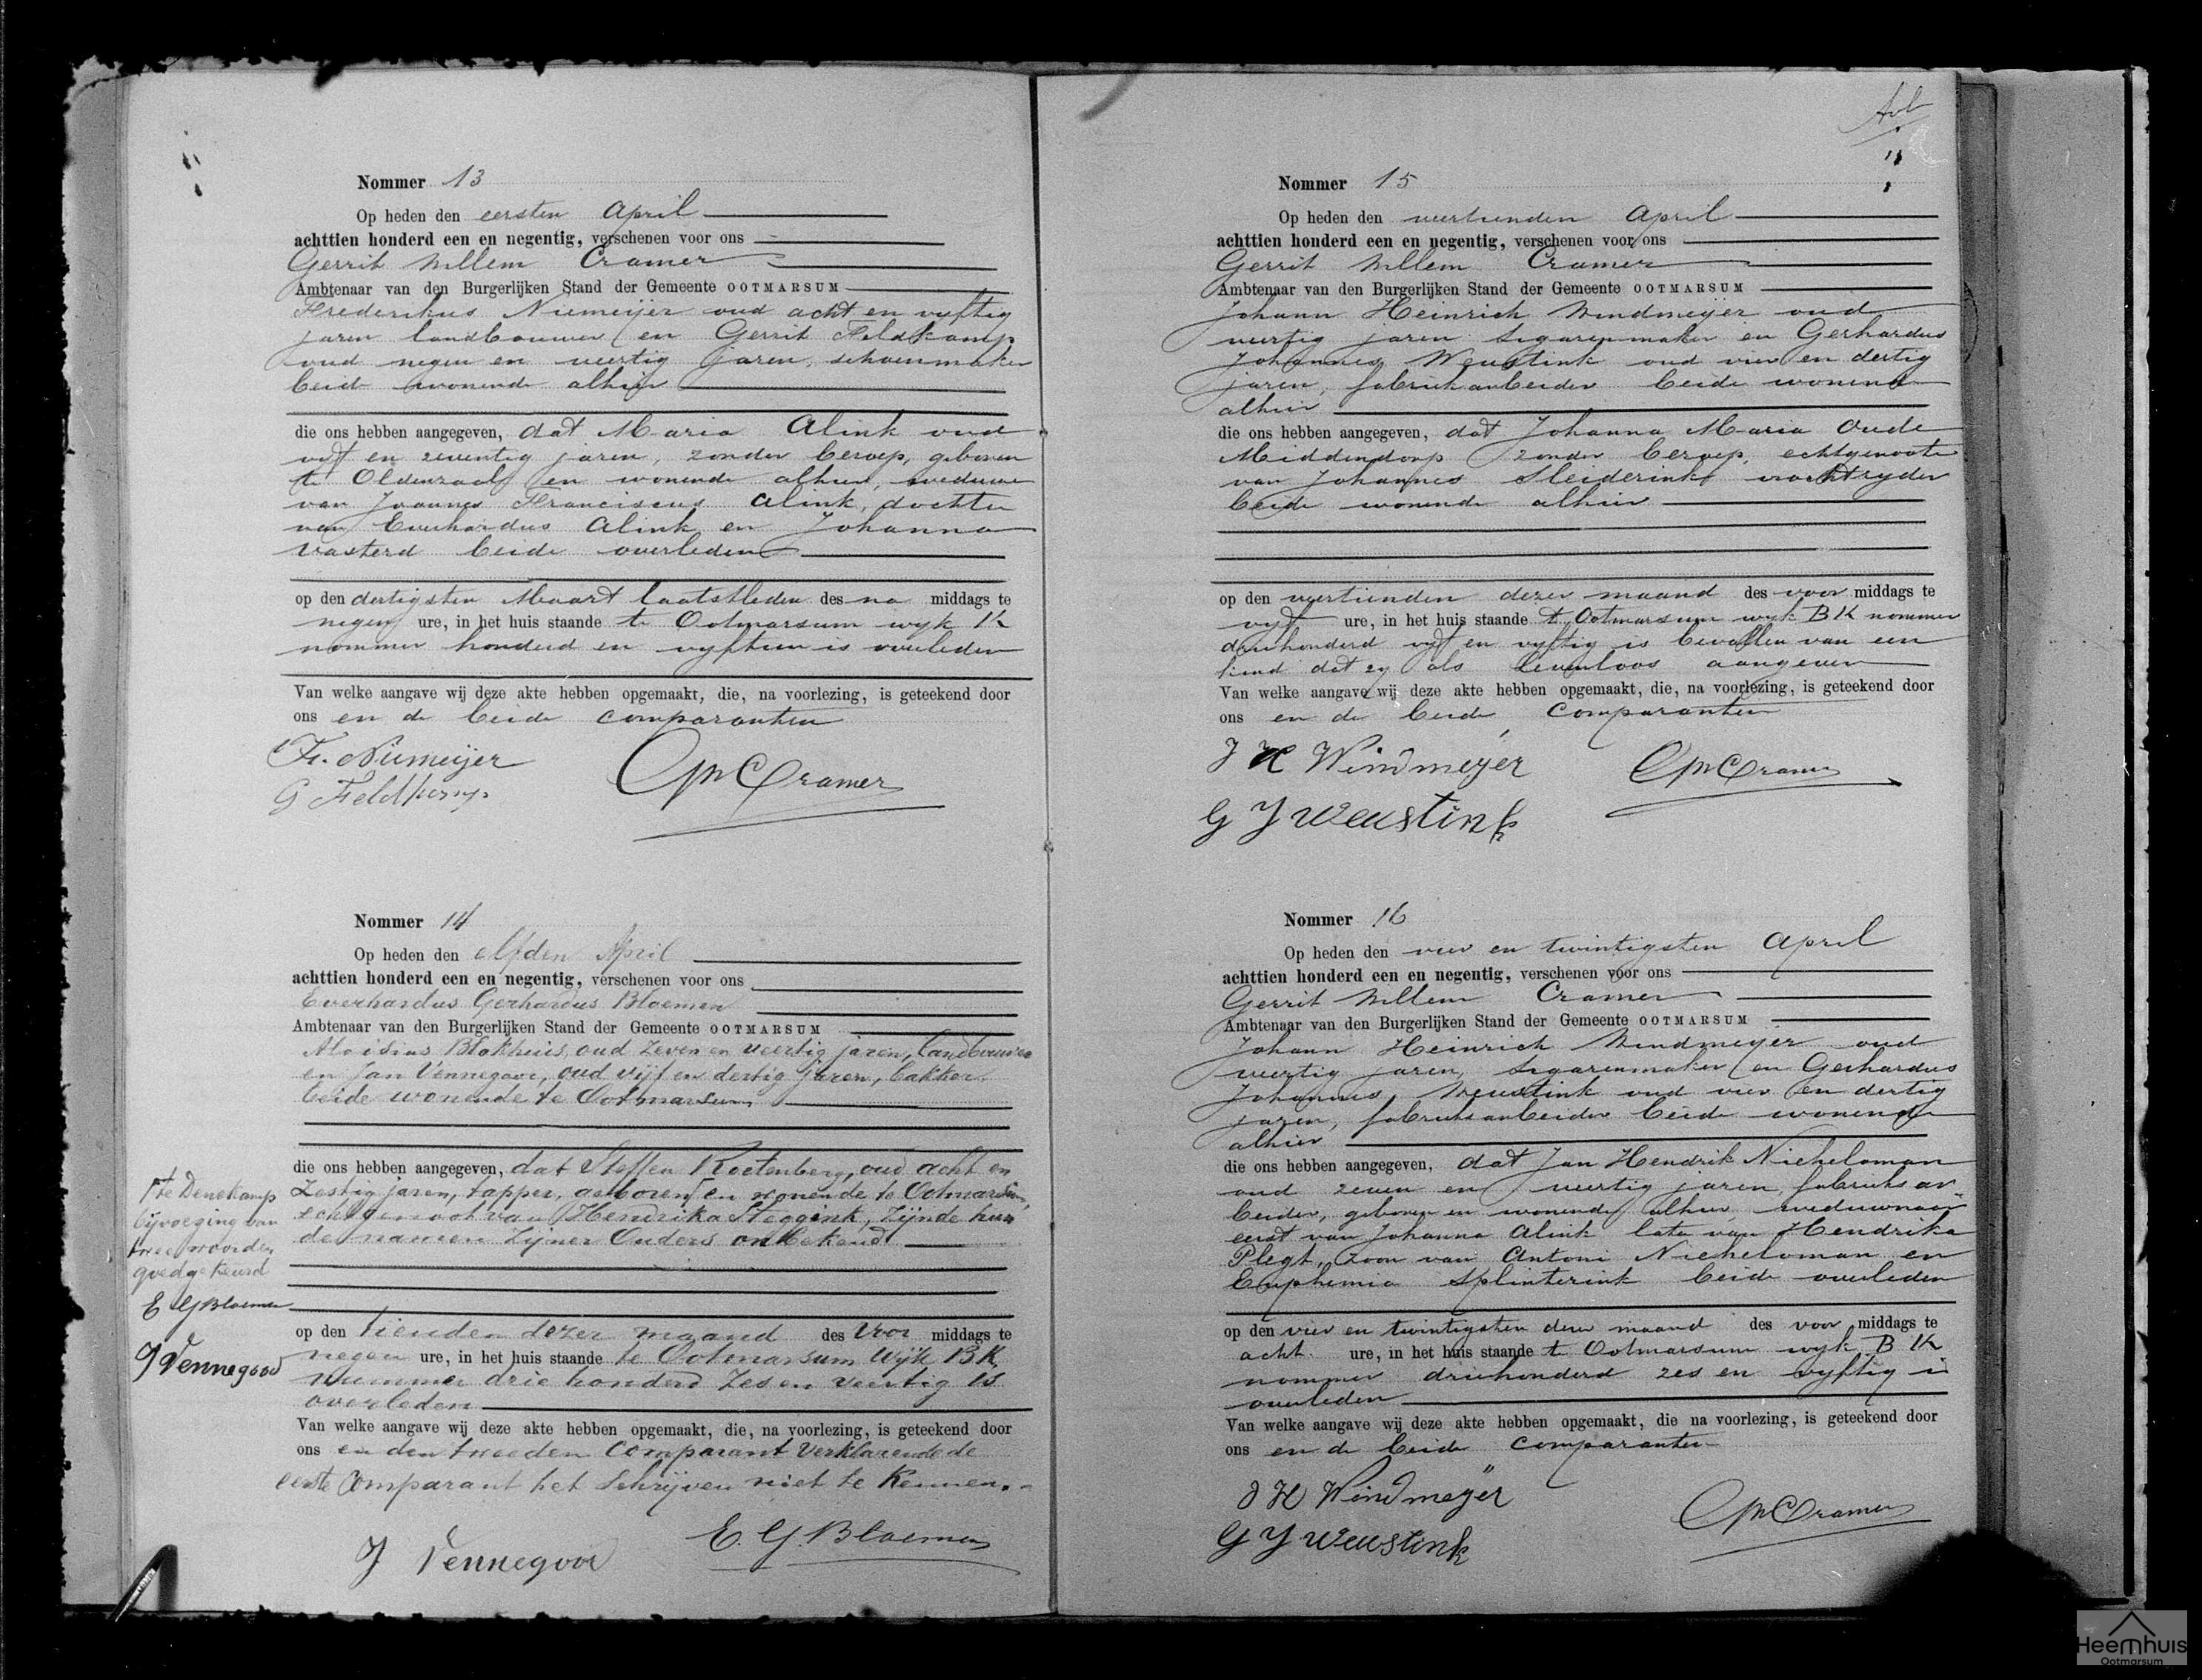 Nommer 13
Op heden den eersten April
achttien honderd een en negentig, verschenen voor ons
Gerrit Willem Cramer
Ambtenaar van den Burgerlijken Stand der Gemeente OOTMARSUM
Frederikus Niemeijer oud acht en vyftig
jaren landbouwer en Gerrit Feldkamp
oud negen en veertig jaren, schoenmaker
beide wonende alhier
die ons hebben aangegeven, dat Maria Alink oud
vyf en zeventig jaren, zonder beroep, geboren
te Oldenzaal en wonende alhier, weduwe
van Joannes Franciscus Alink, dochter
van Everhardus Alink en Johanna
Vasterd beide overleden
op den dertigsten Maart laatstleden des na middags te
negen ure, in het huis staande te Ootmarsum wyk K
nommer honderd en vyftien is overleden
Van welke aangave wij deze akte hebben opgemaakt, die, na voorlezing, is geteekend door
ons en de beide comparanten
Fr. Niemeijer
GWCramer
G Feldkamp
Nommer 14
Op heden den elfden April
achttien honderd een en negentig, verschenen voor ons
Everhardus Gerhardus Bloemen
Ambtenaar van den Burgerlijken Stand der Gemeente OOTMARSUM
Aloisius Blokhuis, oud zeven en veertig jaren, landbouwer
en Jan Vennegoor, oud vijf en dertig jaren, bakker
beide wonende te Ootmarsum,
die ons hebben aangegeven, dat Steffen Roetenberg, oud acht en
Zestig jaren, tapper, geboren en wonende te Ootmarsum,
echtgenoot van Hendrika Steggink, zijnde hun
de namen zijner Ouders onbekend
te Denekamp
bijvoeging van
twee woorden
goedgekeurd
E G Bloemen
J Vennegoor
op den tienden dezer maand des voor middags te
negen ure, in het huis staande te Ootmarsum Wijk BK,
nummer drie honderd Zes en veertig is
overleden
Van welke aangave wij deze akte hebben opgemaakt, die, na voorlezing, is geteekend door
ons en den tweeden comparant verklarende de
eerste Comparant het Schrijven niet te Kennen.
J Vennegoor
E. G. Bloemen
Nommer 15
Op heden den veertienden April
achttien honderd een en negentig, verschenen voor ons
Gerrit Willem Cramer
Ambtenaar van den Burgerlijken Stand der Gemeente OOTMARSUM
Johann Heinrich Windmeijer oud
veertig jaren sigarenmaker en Gerhardus
Johannes Weustink oud vier en dertig
jaren, fabriekarbeider beide wonende
alhier
die ons hebben aangegeven, dat Johanna Maria Oude
Middendorp zonder beroep, echtgenoote
van Johannes Sleiderink vrachtryder
beide wonende alhier
op den veertienden dezer maand des voor middags te
vyf ure, in het huis staande te Ootmarsum wyk BK nommer
driehonderd vyf en vyftig is bevallen van een
kind dat zy als levenloos aangeven
Van welke aangave wij deze akte hebben opgemaakt, die, na voorlezing, is geteekend door
ons en de beide Comparanten
J H Windmeijer
GWCramer
G J Weustink
Nommer 16
Op heden den vier en twintigsten April
achttien honderd een en negentig, verschenen voor ons
Gerrit Willem Cramer
Ambtenaar van den Burgerlijken Stand der Gemeente OOTMARSUM
Johann Heinrich Windmeyer oud
veertig jaren, sigarenmaker en Gerhardus
Johannes Weustink oud vier en dertig
jaren, fabrieksarbeider beide wonende
alhier
die ons hebben aangegeven, dat Jan Hendrik Nieheloman
oud zeven en veertig jaren, fabrieksar
beider, geboren en wonende alhier, weduwnaar
eerst van Johanna Alink later van Hendrika
Plegt, zoon van Antoni Nieheloman en
Euphemia Splinterink beide overleden
op den vier en twintigsten dezer maand des voor middags te
acht ure, in het huis staande te Ootmarsum wyk B K
nommer driehonderd zes en vyftig is
overleden
Van welke aangave wij deze akte hebben opgemaakt, die na voorlezing, is geteekend door
ons en de beide comparanten
J H Windmeijer
GWCramer
G J Weustink
Heemhuis
Ootmarsum